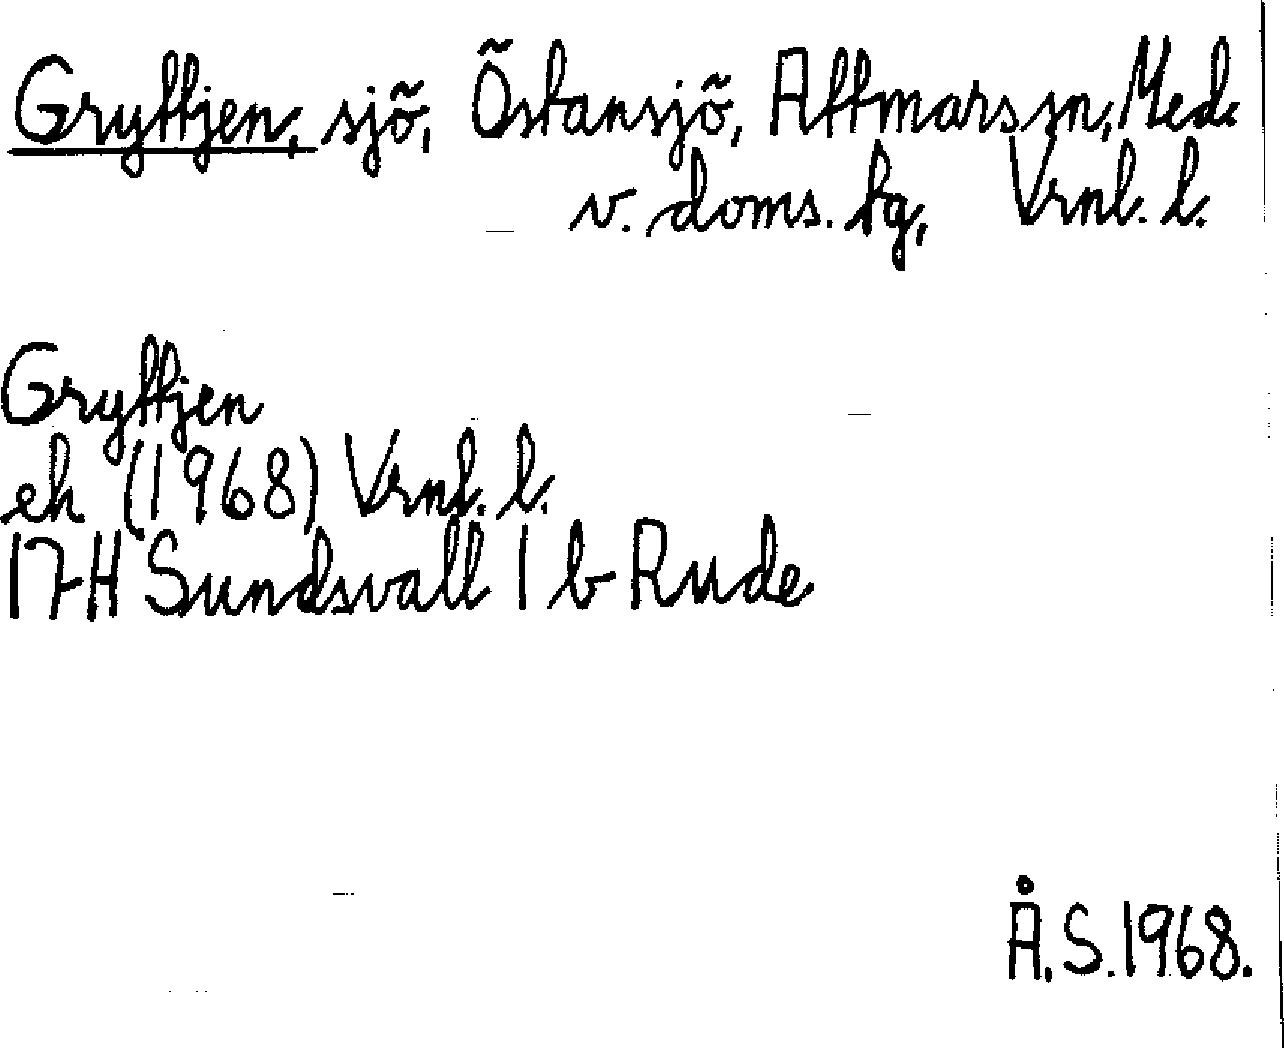 Gryttjen, sjö, Östansjö, Attmars sn, Med.
v. doms. tg, Vrnl. l.
Gryttjen
ek (1968) Vrnl. l.
17H Sundsvall 1 b Rude
Å.S. 1968.